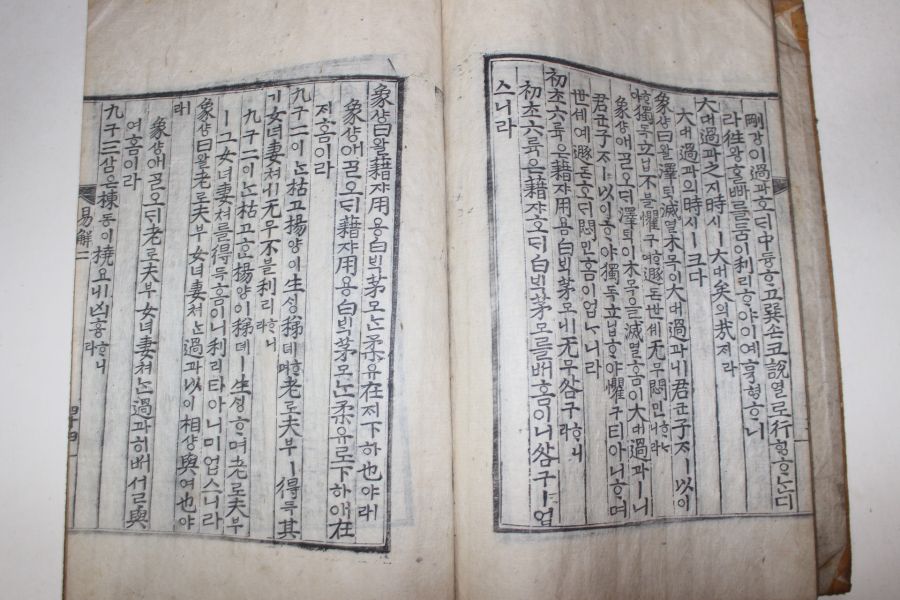 剛강이過과호ᄃᆡ中듕ᄒᆞ고巽손코說열로行ᄒᆡᆼᄒᆞᄂᆞᆫ디
라徃왕홈배를둠이利리ᄒᆞ야이예亨형ᄒᆞ니
大대過과之지時시ㅣ大대矣의哉ᄌᆡ라
大대過과의時시ㅣ크다
象샹曰왈澤ᄐᆡᆨ滅멸木목이大대過과ㅣ니君군子ᄌᆞㅣ以이ᄒᆞ야
獨독立닙不블懼구ᄒᆞ며遯돈世셰无무悶민ᄒᆞᄂᆞ니라
象샹애ᄀᆞᆯ오ᄃᆡ澤ᄐᆡᆨ이木목을滅멸홈이大대過과ㅣ니
君군子ᄌᆞㅣ以이ᄒᆞ야獨독立닙ᄒᆞ야懼구티아니ᄒᆞ며
世셰예遯돈호ᄃᆡ悶민홈이업ᄂᆞ니라
初초六륙은藉쟈用용白ᄇᆡᆨ茅모ㅣ니无무咎구ᄒᆞ니라
初초六륙은藉쟈호ᄃᆡ白ᄇᆡᆨ茅모를ᄡᅥ홈이니咎구ㅣ업
스니라
象샹曰왈藉쟈用용白ᄇᆡᆨ茅모ᄂᆞᆫ柔유在ᄌᆡ下하也야ㅣ라
象샹애ᄀᆞᆯ오ᄃᆡ藉쟈用용白ᄇᆡᆨ茅모ᄂᆞᆫ柔유로下하애在
ᄌᆡ홈이라
九구二이ᄂᆞᆫ枯고楊양이生ᄉᆡᆼ稊뎨ᄒᆞ며老로夫부ㅣ得득其
기女녀妻쳐ㅣ니无무不블利리ᄒᆞ니라
九구二이ᄂᆞᆫ枯고ᄒᆞᆫ楊양이稊뎨ㅣ生ᄉᆡᆼᄒᆞ며老로夫부
ㅣ그女녀妻쳐를得득홈이니利리티아니미업스니라
象샹曰왈老로夫부女녀妻쳐ᄂᆞᆫ過과以이相샹與여也야
ㅣ라
象샹애ᄀᆞᆯ오ᄃᆡ老로夫부女녀妻쳐ᄂᆞᆫ過과히ᄡᅥ서르與
여홈이라
九구三삼은棟동이橈요ㅣ니凶흉ᄒᆞ니라
易解二
四十四